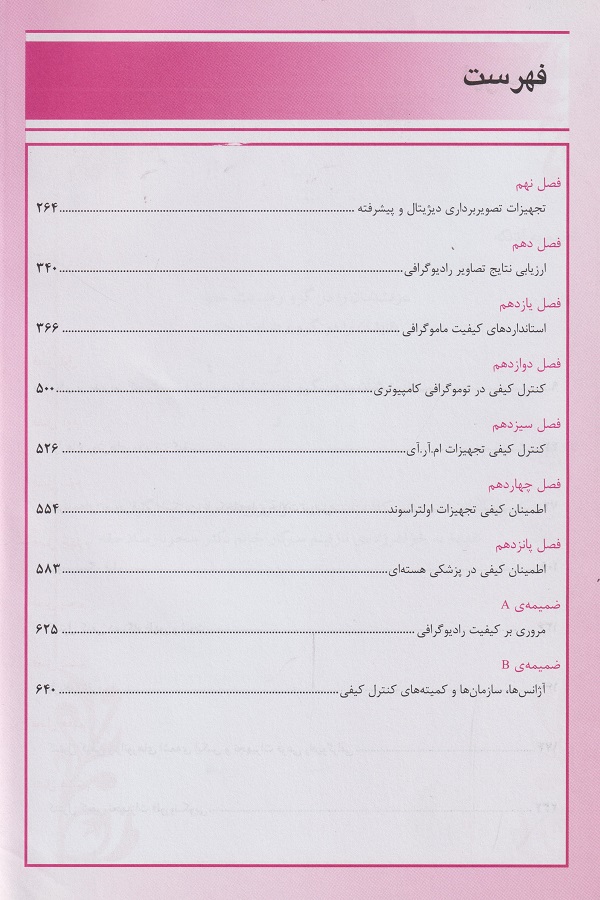 فهرست
فصل نهم
تجهیزات تصویربرداری دیژیتال و پیشرفته ........................................ ۲۶۴
فصل دهم
ارزیابی نتایج تصاویر رادیوگرافی ........................................ ۳۴۰
فصل یازدهم
استانداردهای کیفیت ماموگرافی ........................................ ۳۶۶
فصل دوازدهم
کنترل کیفی در توموگرافی کامپیوتری ........................................ ۵۰۰
فصل سیزدهم
کنترل کیفی تجهیزات ام.آر.آی ........................................ ۵۲۶
فصل چهاردهم
اطمینان کیفی تجهیزات اولتراسوند ........................................ ۵۵۴
فصل پانزدهم
اطمینان کیفی در پزشکی هسته‌ای ........................................ ۵۸۳
ضمیمه‌ی A
مروری بر کیفیت رادیوگرافی ........................................ ۶۲۵
ضمیمه‌ی B
آژانس‌ها، سازمان‌ها و کمیته‌های کنترل کیفی ........................................ ۶۴۰